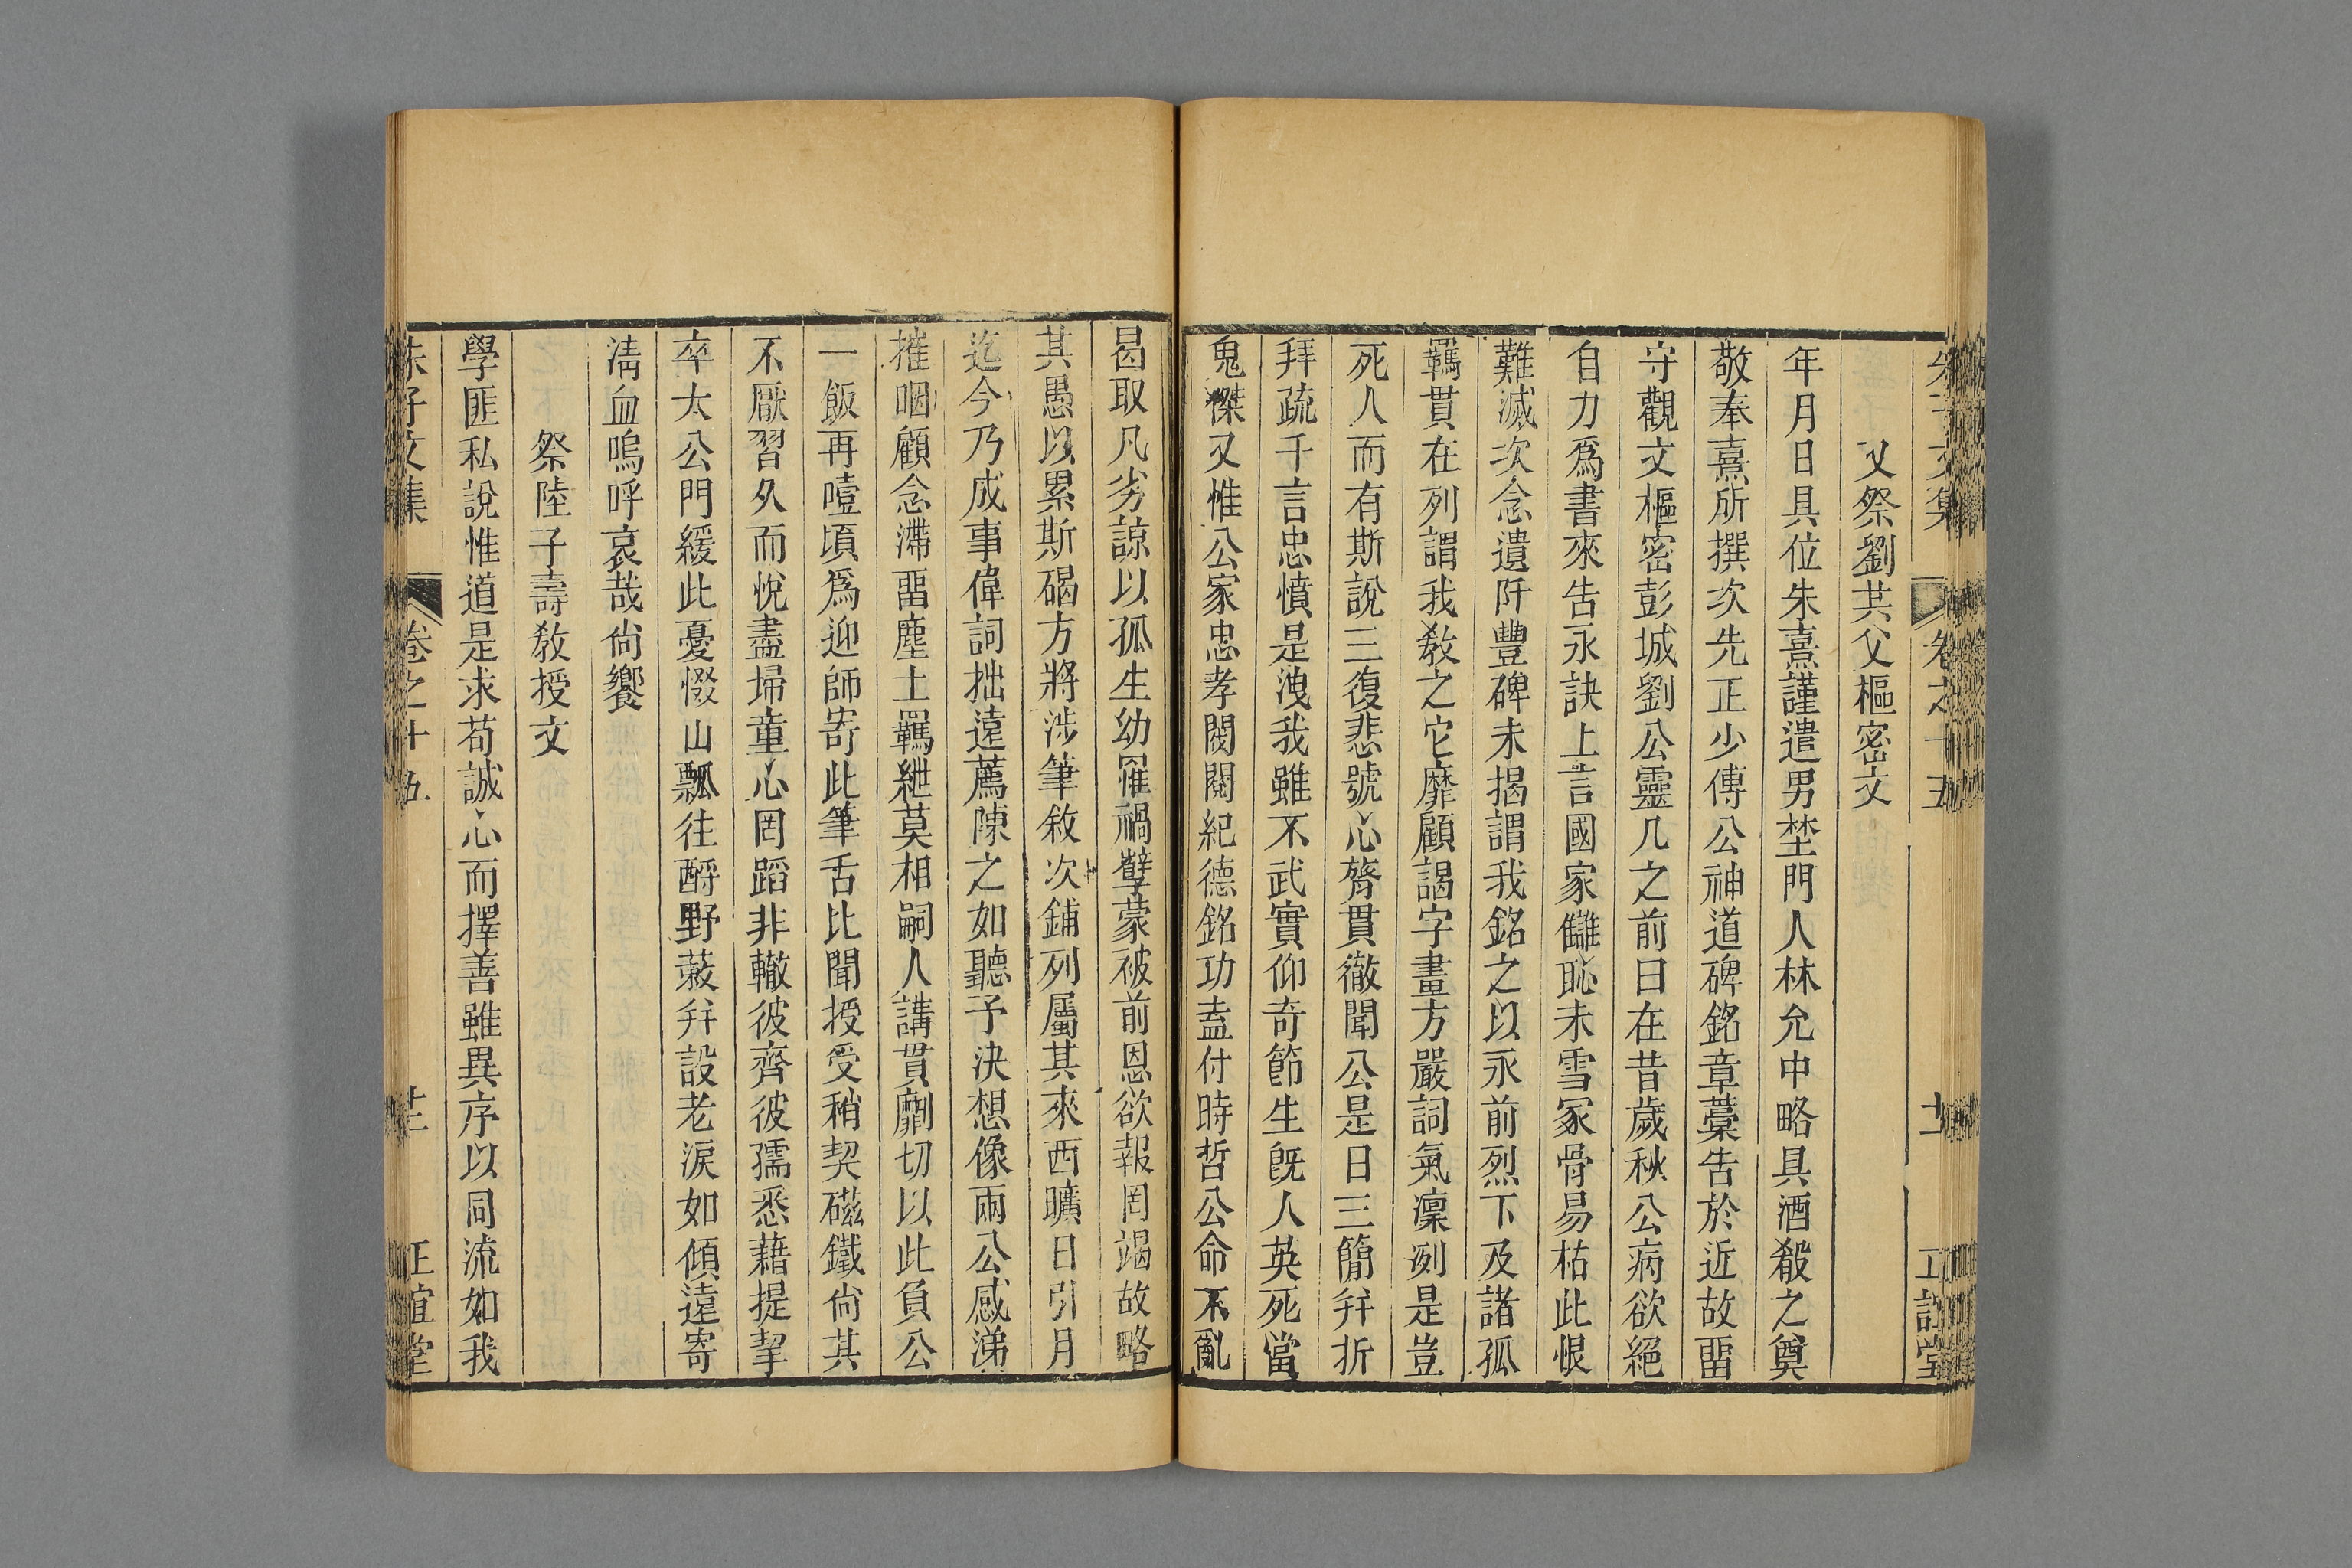 朱子文集 卷之十五 十一 正誼堂
又祭劉共父樞密文
年月日具位朱熹謹遣男埜門人林允中略具酒殽之奠
敬奉熹所撰次先正少傅公神道碑銘章藁告於近故畱
守觀文樞密彭城劉公靈几之前曰在昔歲秋公病欲絕
自力爲書來告永訣上言國家讎恥未雪冢骨易枯此恨
難滅次念遺阡豐碑未揭謂我銘之以永前烈下及諸孤
羈貫在列謂我敎之它靡顧謁字畫方嚴詞氣凜冽是豈
死人而有斯說三復悲號心膂貫徹聞公是日三簡幷折
拜疏千言忠憤是洩我雖不武實仰奇節生旣人英死當
鬼傑又惟公家忠孝閥閱紀德銘功盍付時哲公命不亂
曷取凡劣諒以孤生幼罹禍孽蒙被前恩欲報罔竭故略
其愚以累斯碣方將涉筆敘次鋪列屬其來西曠日引月
迄今乃成事偉詞拙遠薦陳之如聽予決想像兩公感涕
摧咽顧念滯畱塵土羈紲莫相嗣人講貫劘切以此負公
一飯再噎頃爲迎師寄此筆舌比聞授受稍契磁鐵尙其
不厭習久而悅盡埽童心罔蹈非轍彼齊彼孺悉藉提挈
卒太公門緩此憂惙山瓢往酹野蔌幷設老淚如傾遠寄
淸血嗚呼哀哉尙饗
祭陸子壽敎授文
學匪私說惟道是求苟誠心而擇善雖異序以同流如我
朱子文集 卷之十五 十二 正誼堂